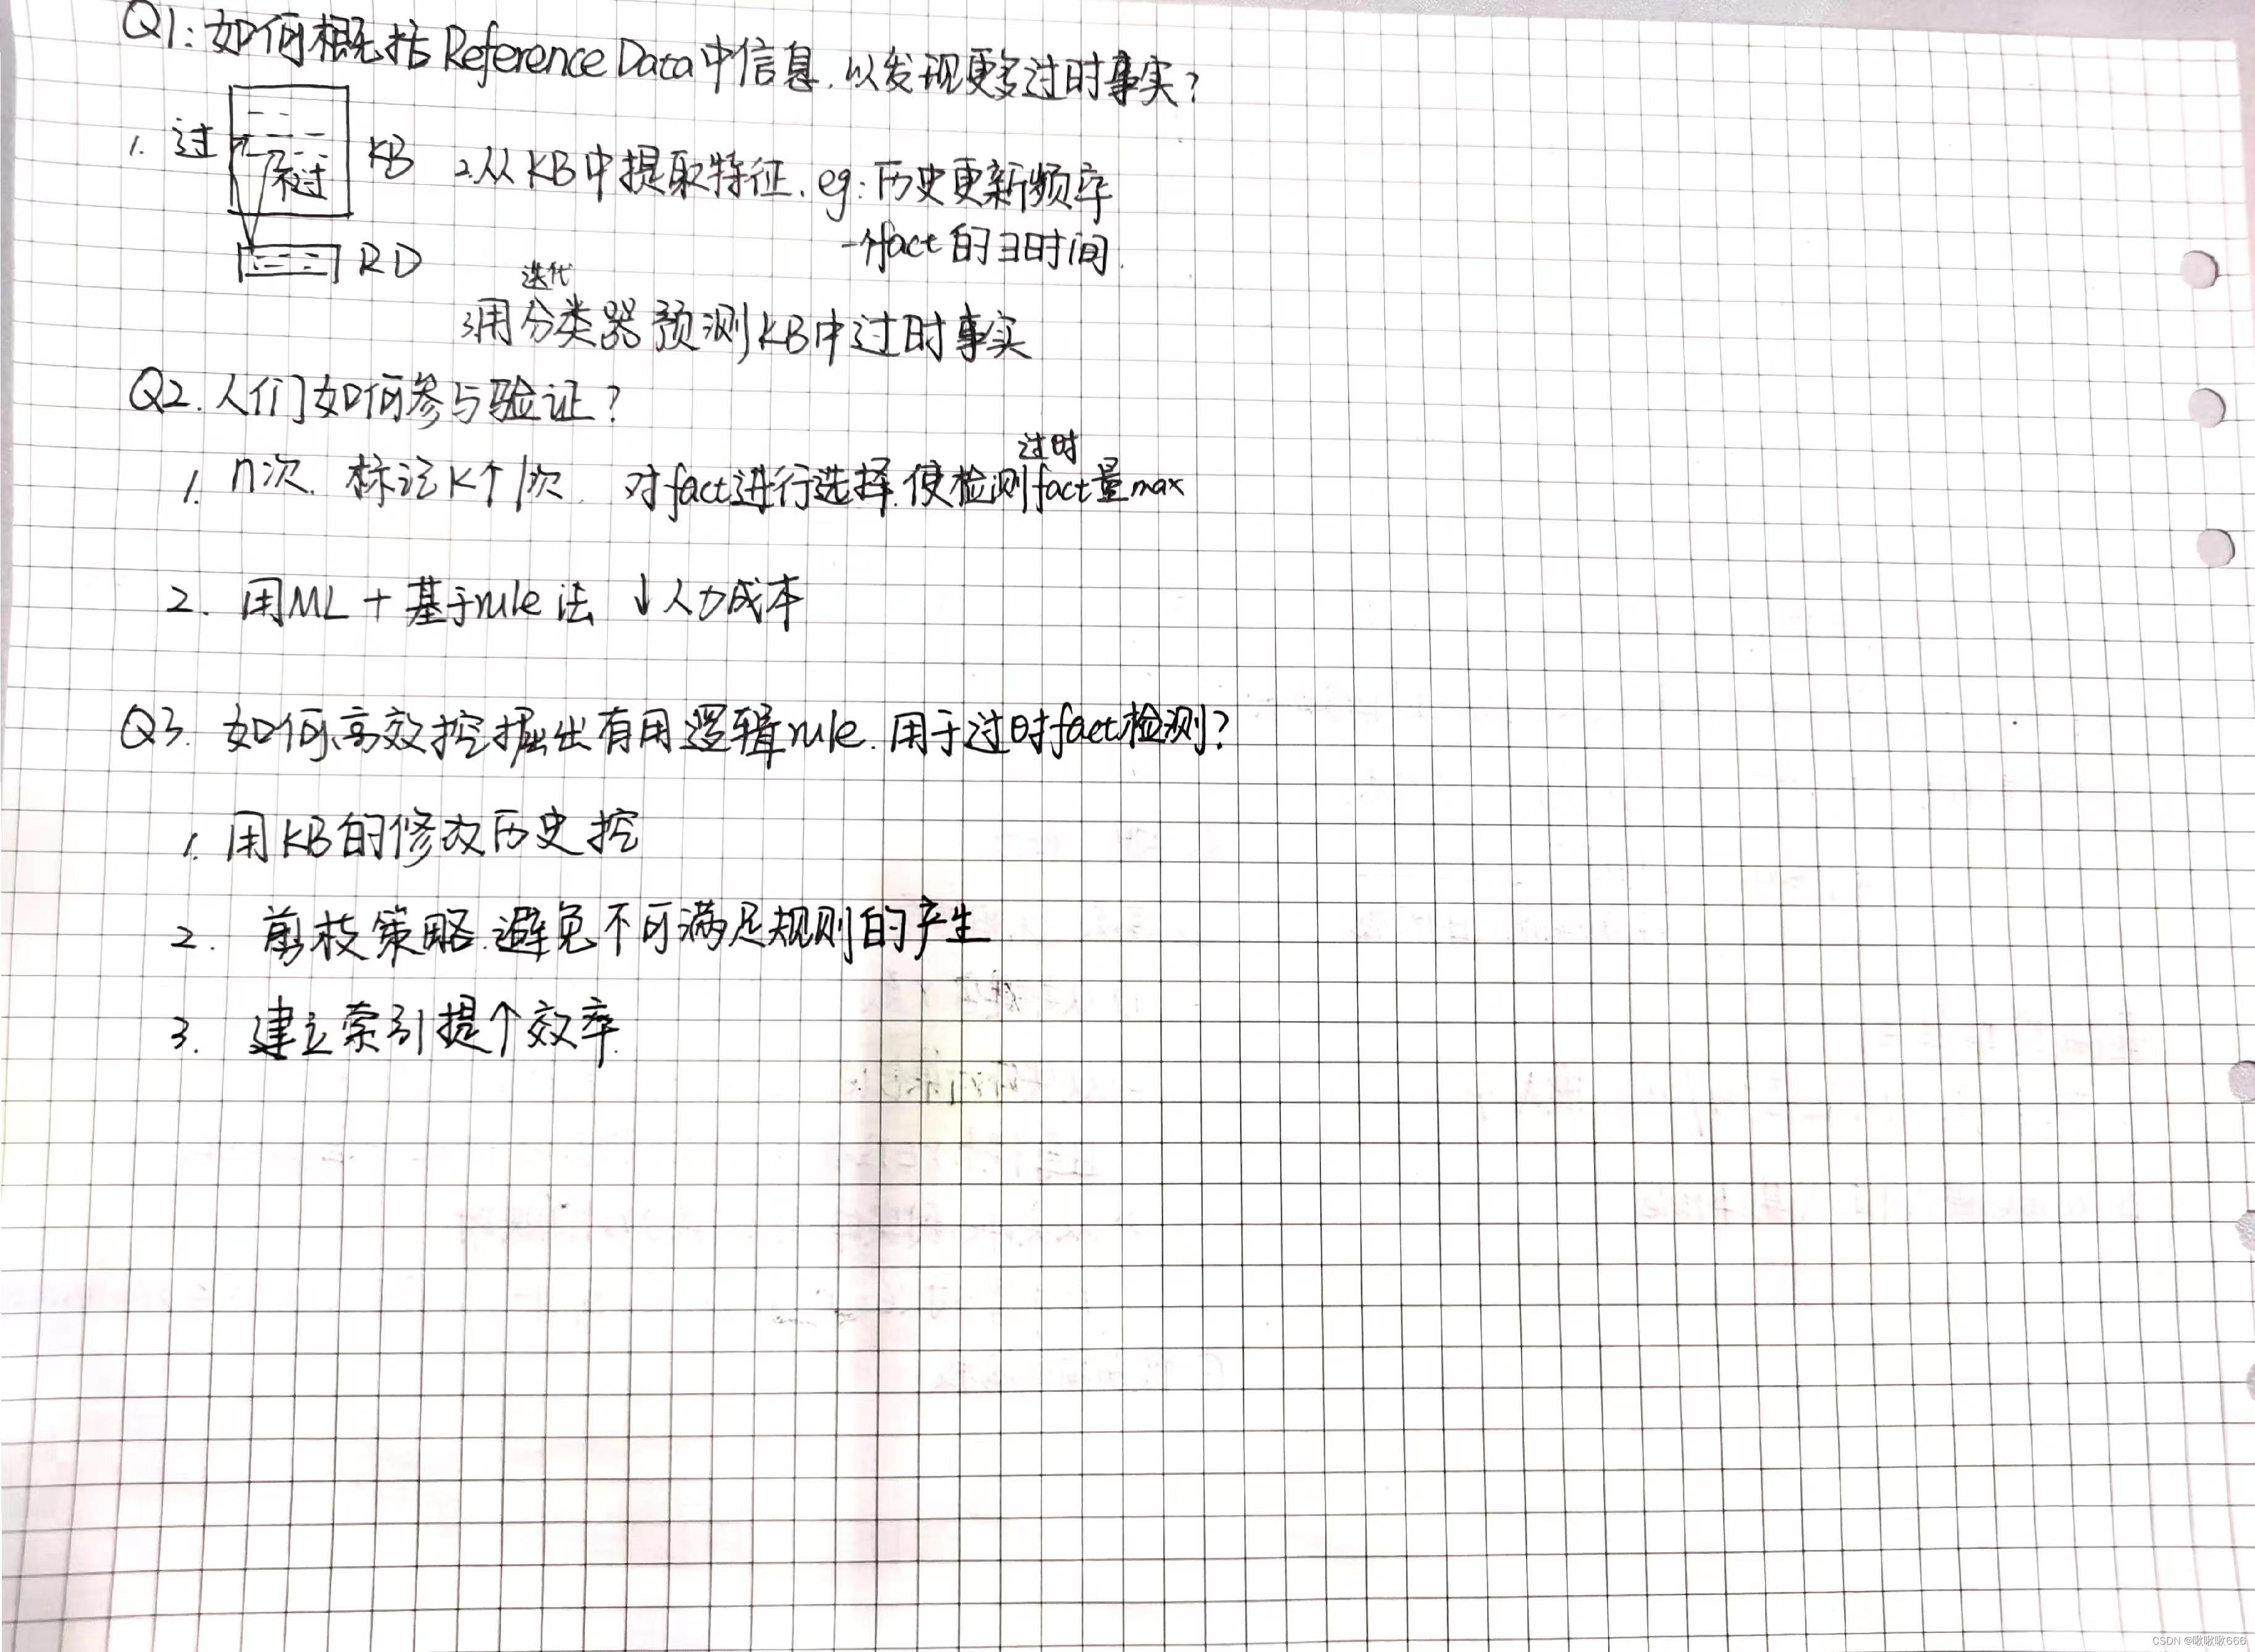 Q1:如何概括Reference Data中信息.以发现更多过时事实?
1. 过
不过
KB
2.从KB中提取特征.eg:历史更新频率
一个fact的∃时间.
RD
迭代
3.用分类器预测KB中过时事实
Q2.人们如何参与验证?
过时
1. n次.标记K个/次. 对fact进行选择.使检测fact量max
2. 用ML+基于rule法 ↓人力成本
Q3.如何高效挖掘出有用逻辑rule.用于过时fact检测?
1.用KB的修改历史挖
2. 剪枝策略.避免不可满足规则的产生
3. 建立索引提个效率.
CSDN @啾啾啾666